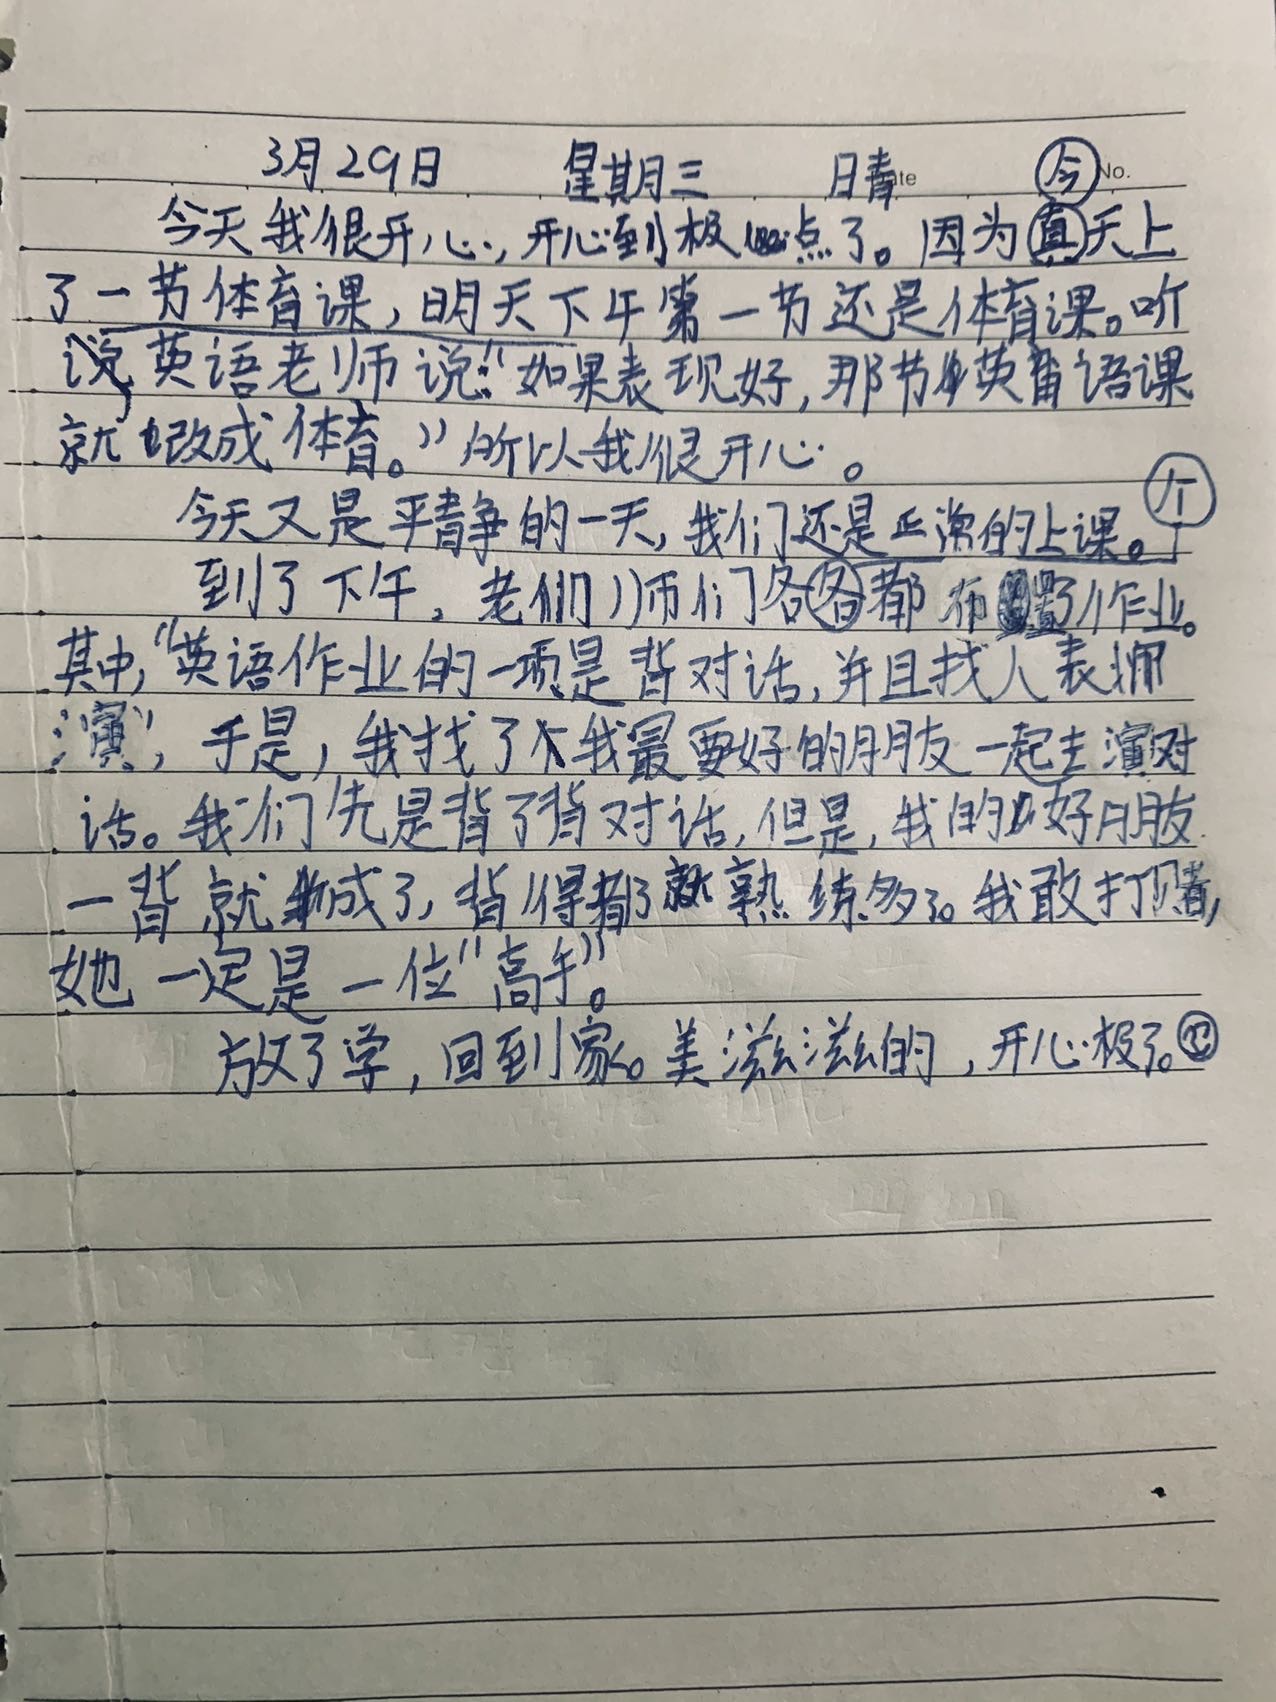 3月29日 星期三 晴 ate 今 No.
今天我很开心,开心到极点了。因为真天上
了一节体育课,明天下午第一节还是体育课。听
说英语老师说:“如果表现好,那节英语课
就改成体育。”所以我很开心。
个
今天又是平静的一天,我们还是正常的上课。
到了下午,老师们各各都布置了作业。
其中,“英语作业的一项是背对话,并且找人表
演”,于是,我找了我最要好的朋友一起去演对
话。我们先是背了背对话,但是,我的好朋友
一背就成了,背得都熟练多了。我敢打赌,
她一定是一位“高手”。
放了学,回到家。美滋滋的,开心极了。